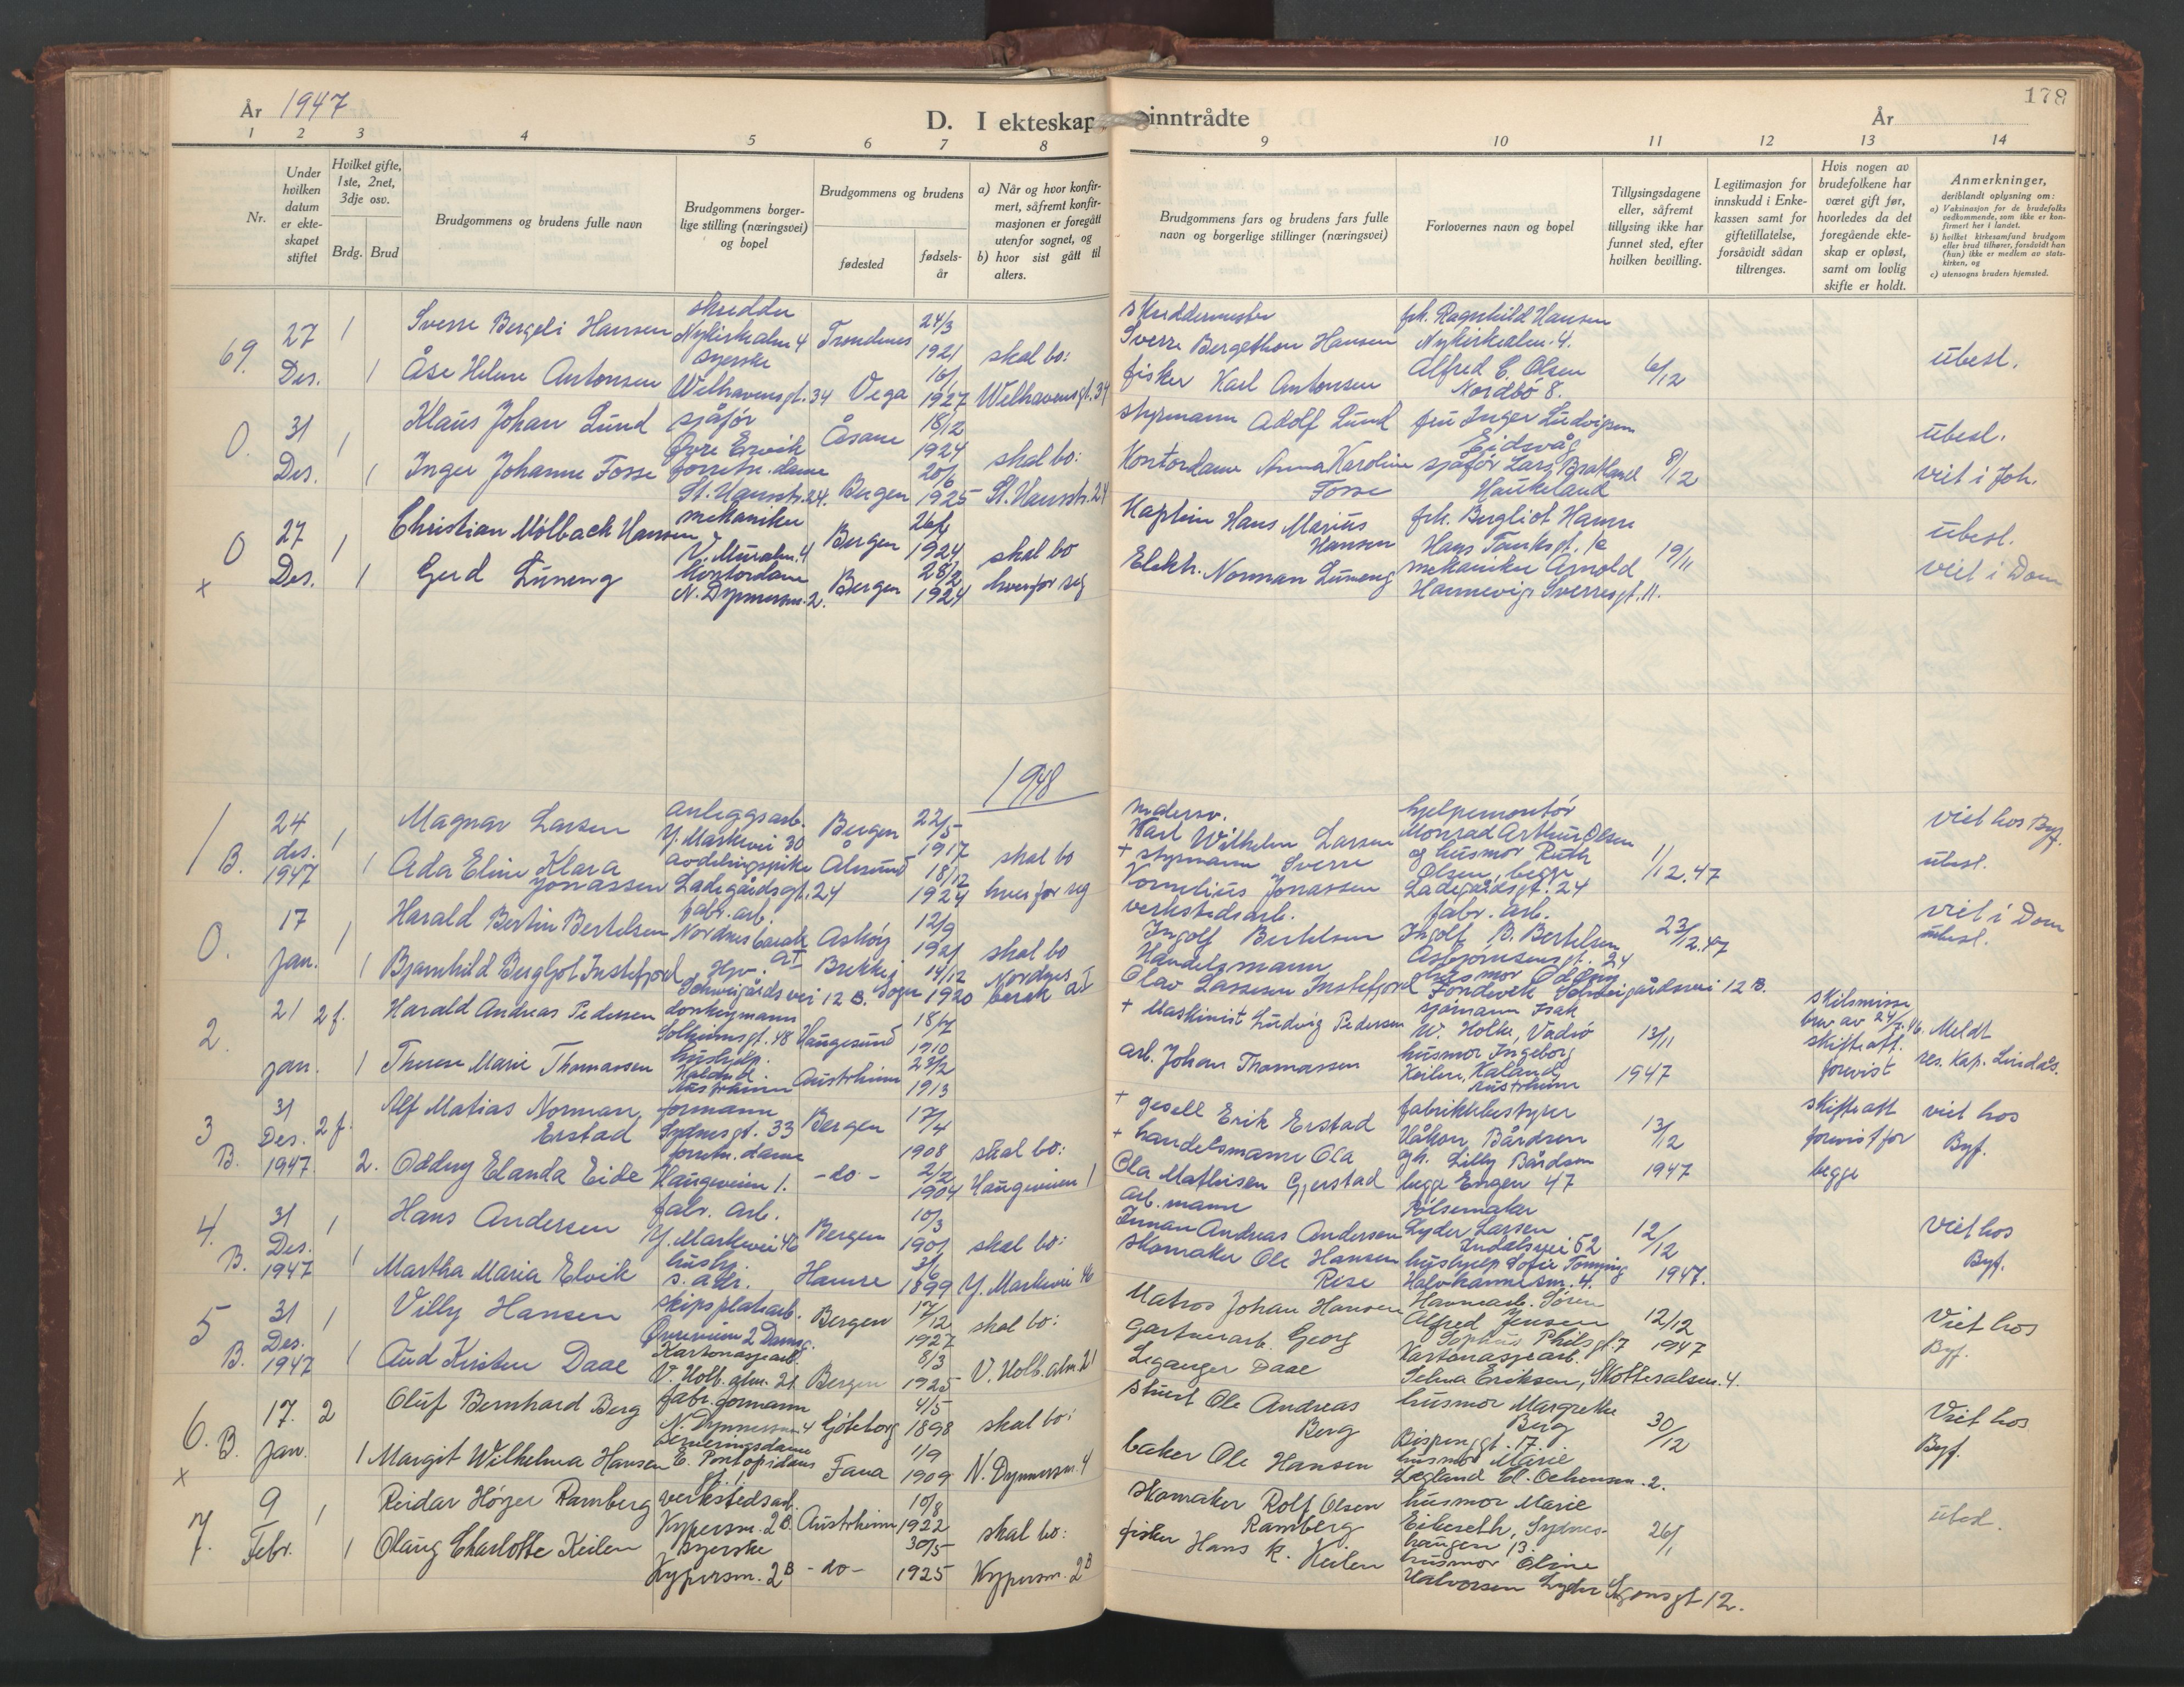 År 1947
D. I ekteskap inntrådte
År
178
1 2 3 4 5 6 7 8 9 10 11 12 13 14
Nr.
Under hvilken datum er ekteskapet stiftet
Hvilket gifte, 1ste, 2net, 3dje osv.
Brdg. Brud
Brudgommens og brudens fulle navn
Brudgommens borgerlige stilling (næringsvei) og bopel
Brudgommens og brudens
fødested
fødselsår
a) Når og hvor konfirmert, såfremt konfirmasjonen er foregått utenfor sognet, og
b) hvor sist gått til alters.
Brudgommens fars og brudens fars fulle navn og borgerlige stillinger (næringsvei)
Forlovernes navn og bopel
Tillysingsdagene eller, såfremt tillysing ikke har funnet sted, efter hvilken bevilling.
Legitimasjon for innskudd i Enkekassen samt for giftetillatelse, forsåvidt sådan tiltrenges.
Hvis nogen av brudefolkene har været gift før, hvorledes da det foregående ekteskap er opløst, samt om lovlig skifte er holdt.
Anmerkninger,
deriblandt oplysning om:
a) Vaksinasjon for de brudefolks vedkommende, som ikke er konfirmert her i landet.
b) hvilket kirkesamfund brudgom eller brud tilhører, forsåvidt han (hun) ikke er medlem av statskirken, og
c) utensogns bruders hjemsted.
69. 27 Des. 1 Sverre Bergeli Hansen skredder Nykirkealm. 4 Trondenes 24/3 1921
1 Åse Helene Antonsen syerske Welhavensgt. 34 Vega 1927 skal bo: Welhavensgt. 34
skreddermester Sverre Bergethon Hansen frk. Ragnhild Hansen Nykirkealm. 4.
fisker Karl Antonsen Alfred C. Olsen Nordbö 8. 6/12 ubesl.
0. 31 Des. 1 Klaus Johan Lund sjåför Øvre Ervik Åsane 18/12 1924
1 Inger Johanne Fosse forretn. dame St. Hansstr. 24. Bergen 20/6 1925 skal bo: St. Hansstr. 24
styrmann Adolf Lund fru Inger Ludvigsen Eidsvåg
Kontordame Anna Karoline Fosse sjåför Lars Bratland Haukeland 8/12 ubesl. viet i Joh.
0 x 27 Des. 1 Christian Mölbach Hansen mekaniker V. Muralm. 4 Bergen 1924
1 Gerd Luneng Kontordame N. Dypmersm. 2. Bergen 28/2 1924 skal bo hver for seg
Kaptein Hans Marius Hansen frk. Bergliot Hamre Hans Tanksgt.
Elektr. Norman Luneng mekaniker Arnold Hannevig Sverresgt. 11. 19/11 ubesl. viet i Dom
1948
1 B. 24 des. 1947 1 Magnar Larsen anleggsarb. Y. Markevei 30 Bergen 22/5 1917
1 Ada Eline Klara Jonassen avdelingspike Ladegårdsgt. 24 Ålesund 18/12 1924 skal bo hver for seg
Karl Wilhelm Larsen hjelpemontör Monrad Arthur Olsen
+ styrmann Sverre Kornelius Jonassen og husmor Ruth Olsen, begge Ladegårdsgt. 24 1/12.47 viet hos Byf. ubesl.
0. 17 jan. 1 Harald Bertin Bertelsen fabr. arb. Nordnes barak A I Askøy 12/9 1921
1 Bjarnhild Bergljot Instefjord Hjv. Schweigårdsvei 12 B. Brekke Sogn 14/12 1920 skal bo Nordnes barak A I
verkstedsarb. Ingolf Bertelsen fabr. arb. Ingolf B. Bertelsen Asbjornsensgt. 24 23/12.47
Handelsmann Olav Lassesen Instefjord husmor Oddny Schweigårdsvei 12 B. viet i Dom ubesl.
2. 21 jan. 2 f. Harald Andreas Pedersen donkeymann Solheimsgt. 48 Haugesund 18/7 1910
1 Therese Marie Thomassen hushjelp. Austrheim Austrheim 23/2 1913
+ Maskinist Ludvig Pedersen sjömann Isak W. Holke, Vadsö 13/11
arb. Johan Thomassen husmor Ingeborg Keilen, Kaland Austrheim 1947 skilsmisse brev av 24/7.46. skifteatt. forevist Meldt res. kap. Lindås.
3 B. 31 Des. 1947 2 f. Alf Matias Norman Erstad formann Sydnesgt. 33 Bergen 17/4 1908
2. Oddny Elanda Eide forretn. dame Haugeveien 1. -do- 2/2 1904 skal bo: Haugeveien 1
+ gesell Erik Erstad fabrikkbestyrer Håkon Bårdsen 13/12
+ handelsmann Ola Ola Mathisen Gjerstad gh. Lilly Bårdsen begge Engen 47 1947 skifteatt forevist for begge viet hos Byf.
4. B. 31 Des. 1947 1 Hans Andersen fabr. arb. Y. Markevei 46 Bergen 10/3 1901
1 Martha Maria Elvik hushj. s. adr. Hamre 3/6 1899 skal bo: Y. Markevei 46
arb. mann Andreas Andersen Pölsemaker Lyder Larsen Indalsvei 52 12/12
Skomaker Ole Hansen Rise hushjelp Sofie Tonning Halvkannesm. 4. 1947. Viet hos Byf.
5 B. 31 Des. 1947 1 Villy Hansen skipsplatearb. Øvreveien 2 Damsg. Bergen 17/12 1927
1 Aud Kirsten Daae Kartonasjearb. V. Holb. alm. 21 Bergen 8/3 1925 skal bo: V. Holb. alm. 21
Matros Johan Hansen Havnearb. Sören Alfred Jensen 12/12
Gartnerarb. Georg Leganger Daae Kartonasjearb. Selma Eriksen, Skottesalm. 4. 1947 Viet hos Byf.
6. B. x 17. jan. 2 Oluf Bernhard Berg fabr. formann N. Dypmersm. 4 Göteborg 4/5 1898
1 Margit Wilhelma Hansen serveringsdame E. Pontopidans Fana 1/9 1909 skal bo: N. Dypmersm. 4
stuert Ole Andreas Berg husmor Margrethe Berg Bispenggt. 17 30/12
baker Ole Hansen husmor Marie Lægland 2. Viet hos Byf.
7. 9 Febr. 1 Reidar Höyer Ramberg verkstedsarb. Kypersm. 2 B. Austrheim 10/8 1922
1 Olaug Charlotte Keilen Syerske Kypersm. 2 B -do- 30/5 1925 skal bo: Kypersm. 2 B
Skomaker Rolf Olsen Ramberg husmor Marie Eikeseth, Sydneshaugen 13. 26/1
fisker Hans K. Keilen husmor Oline Halvorsen Lyder Sagensgt 12. ubesl.